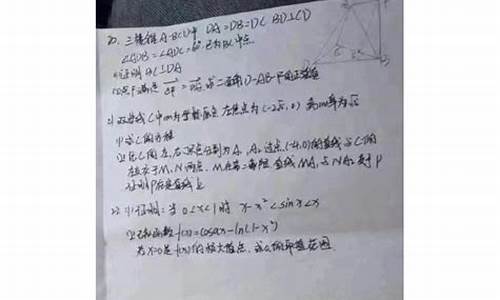 20. 三棱锥 A-BCD中 DA=DB=DC BD⊥CD
∠ADB=∠ADC=60° E为BC中点
(1)证明 BC⊥DA
(2)点F满足 EF=DA, 求二面角D-AB-F的正弦值
21 双曲线C中心为坐标原点 左焦点为(-2√5,0) 离心率为√5
(1)求C的方程
(2)记C的左、右顶点分别为A₁ A₂ 过点(-4,0)的直线与C的
左支交于M,N两点, M在第二象限, 直线MA₁与NA₂交于P
证明P在定直线上
22. (1)证明: 当0<x<1时 x-x²<sinx<x
(2)已知函数f(x)=cosax-ln(1-x²)
若x=0是f(x)的极大值点, 求a的取值范围